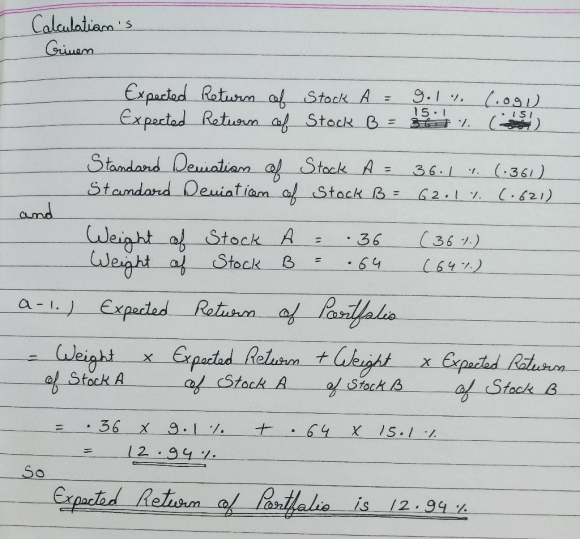 Calculation's
Given
Expected Return of Stock A = 9.1 % (.091)
Expected Return of Stock B = 15.1 % (.151)
Standard Deviation of Stock A = 36.1 % (.361)
Standard Deviation of Stock B = 62.1 % (.621)
and
Weight of Stock A = .36 (36 %)
Weight of Stock B = .64 (64 %)
a-1.) Expected Return of Portfolio
= Weight × Expected Return + Weight × Expected Return
of Stock A of Stock A of Stock B of Stock B
= .36 × 9.1 % + .64 × 15.1 %
= 12.94 %
So
Expected Return of Portfolio is 12.94 %